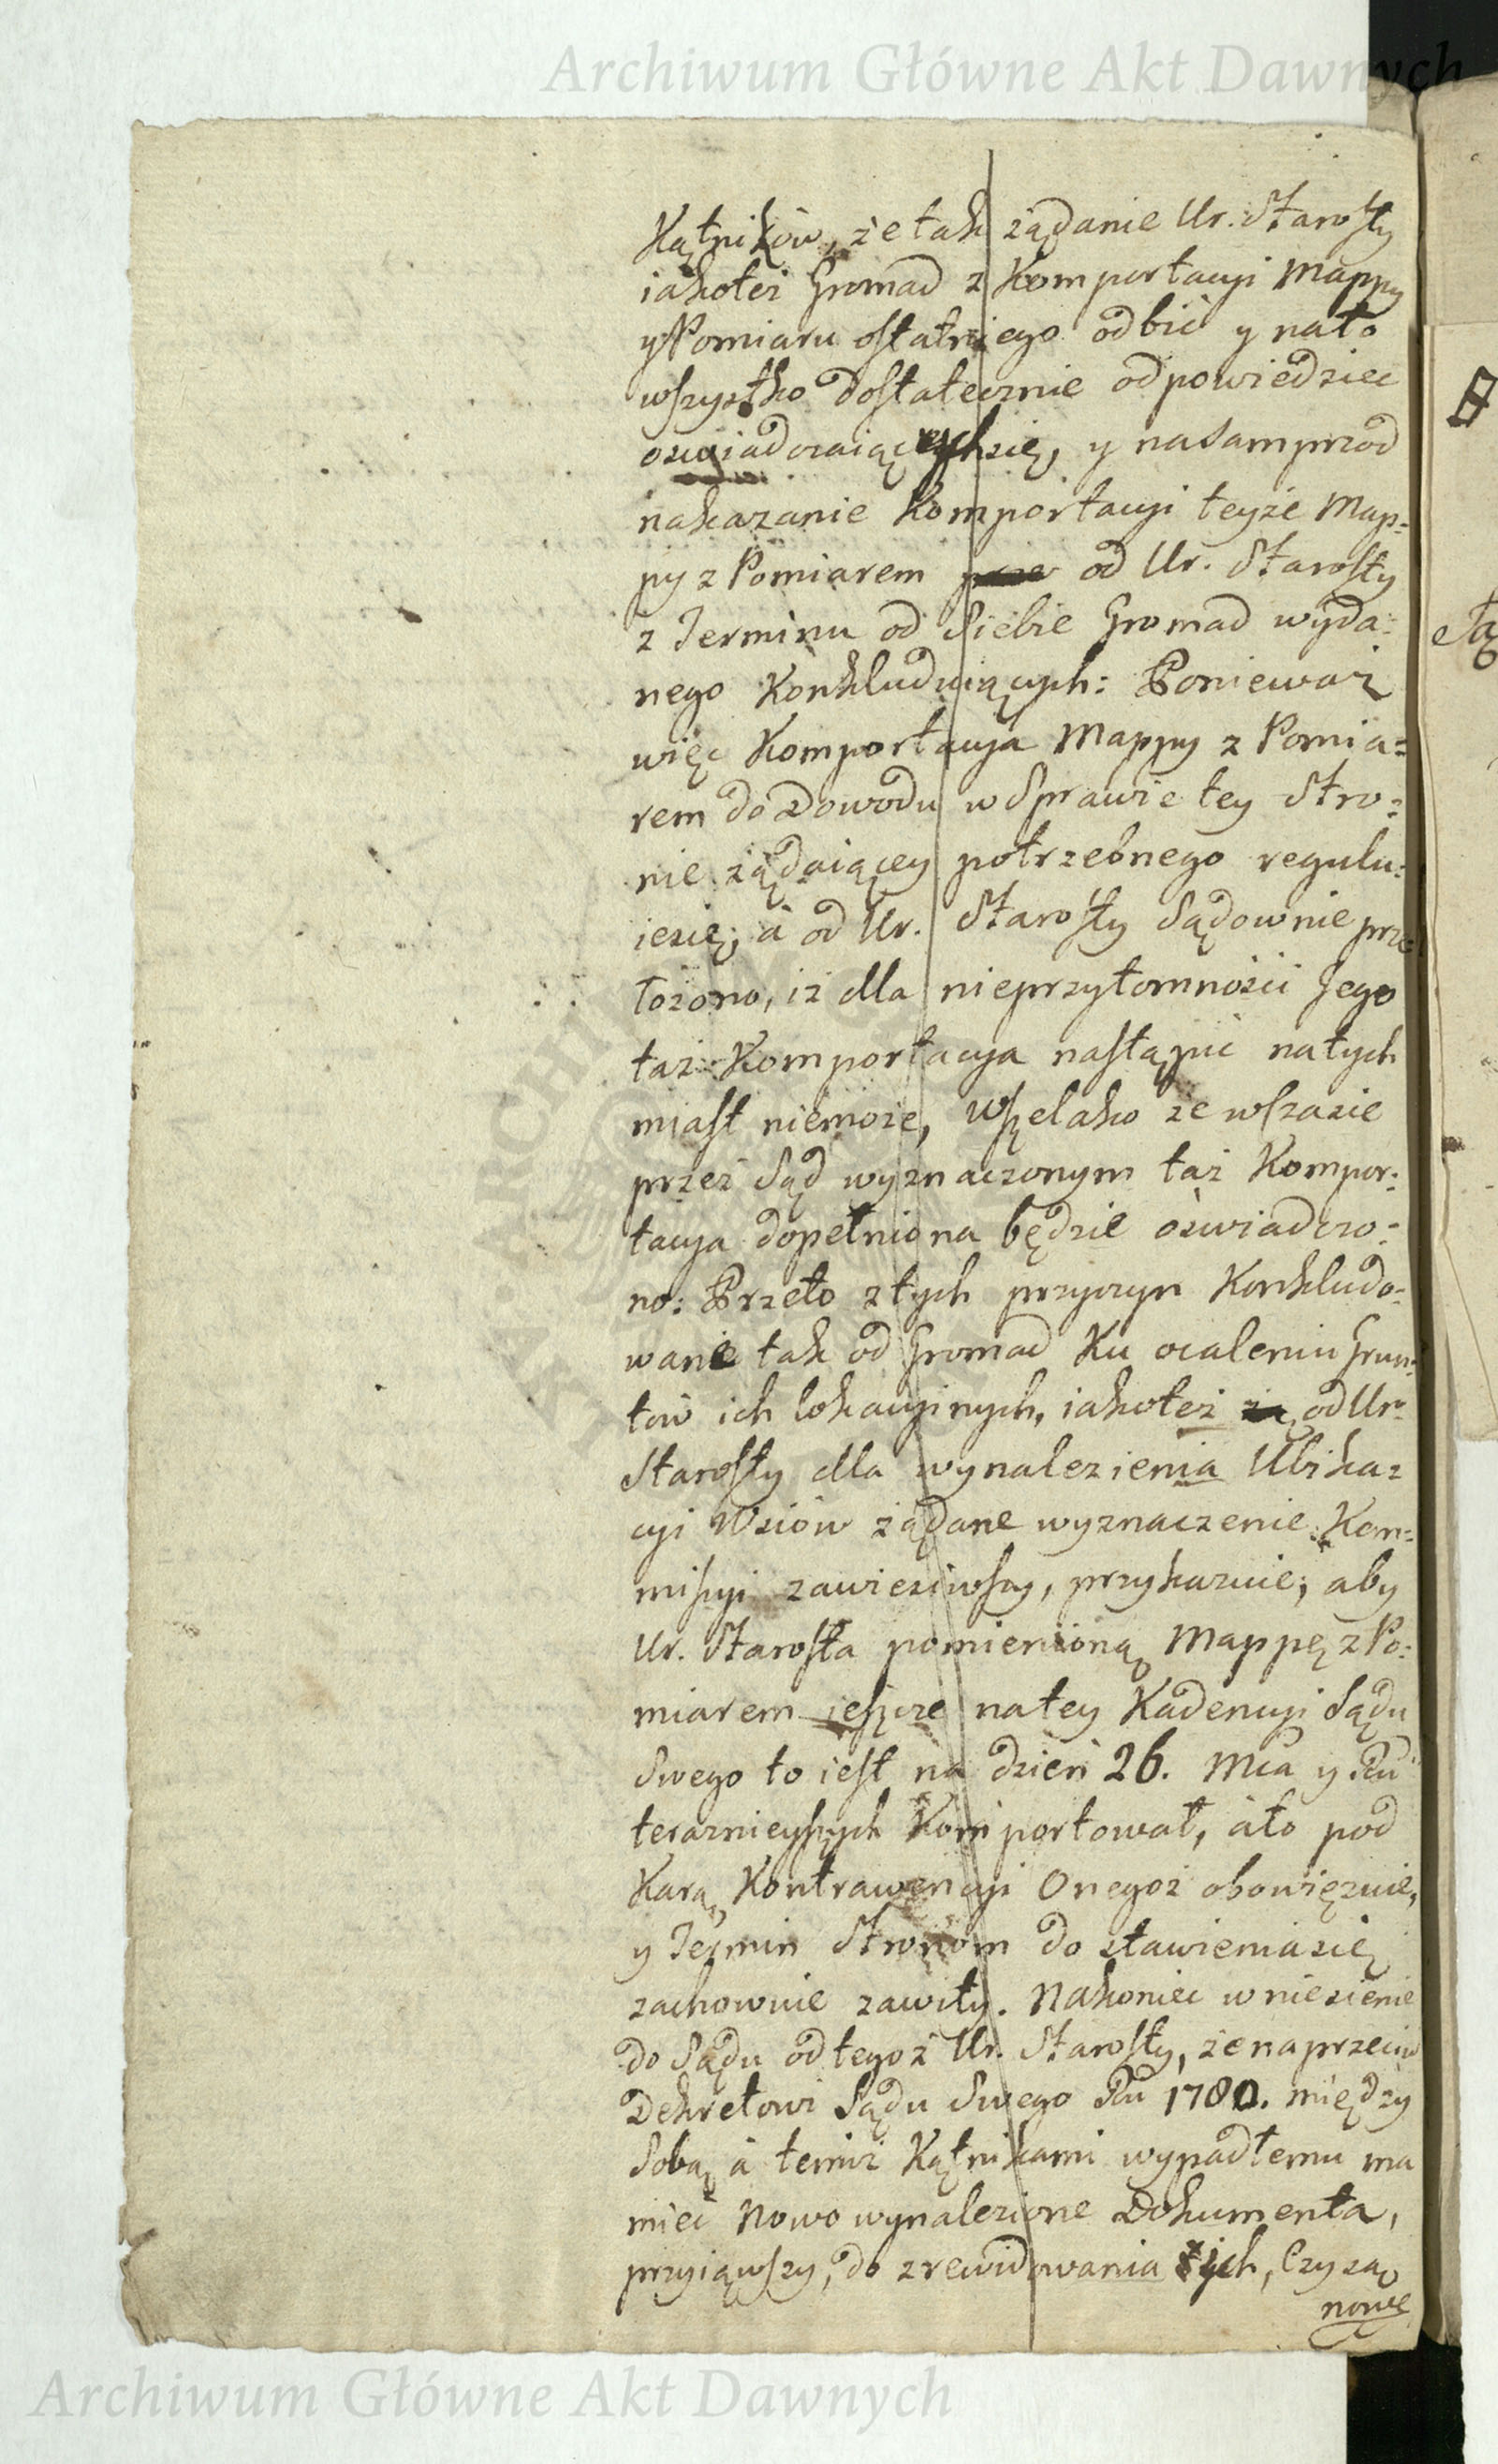 Archiwum Główne Akt Dawnych
Kątników, że tak żądanie Ur. Starosty
iakoteż Gromad z Komportacyi Mappy
y Pomiaru ostatniego odbić y nato
wszystko dostatecznie odpowiedziec
oswiadczaiących się, y nasamprzod
nakazanie Komportacyi teyże Map=
py z Pomiarem od Ur. Starosty
z Terminu od Siebie Gromad wyda=
nego Konkluduiących: Ponieważ
więc Komportacyia Mappy z Pomia=
rem do Dowodu w Sprawie tey Stro=
nie żądaiącey potrzebnego regulu=
iesię; à od Ur. Starosty Sądownie prze
łożono, iż dla nieprzytomności Jego
taż Komportacya nastąpić natych
miast niemoże, Wszelako że w czasie
przez Sąd wyznaczonym taż Kompor=
tacya dopełniona będzie oświadczo=
no: Przeto z tych przyczyn Konkludo=
wane tak od Gromad Ku ocaleniu Grun=
tów ich lokacyinych, iakoteż od Ur.
Starosty dla wynalezienia Ubika=
cyi Wsiów żądane wyznaczenie Kom=
missyi zawiesiwszy, przykazuie; aby
Ur. Starosta pomienioną Mappę z Po=
miarem ieszcze natey Kadencyi Sądu
Swego to iest na dzień 26. Mca y Ru
teraznieyszych Komportował, àto pod
Karą Kontrawencyi Onegoż obowięzuie,
y Termin Stronom do stawieniasię
zachowuie zawity. Nakoniec wniesienie
do Sądu od tegoż Ur. Starosty, że naprzeciw
Dekretowi Sądu Swego Ru 1780. między
Sobą à temiż Kątnikami wypadłemu ma
mieć Nowo wynalezione Dokumenta,
przyiąwszy, do zrewidowania tych, Czy są
nowe
Archiwum Główne Akt Dawnych